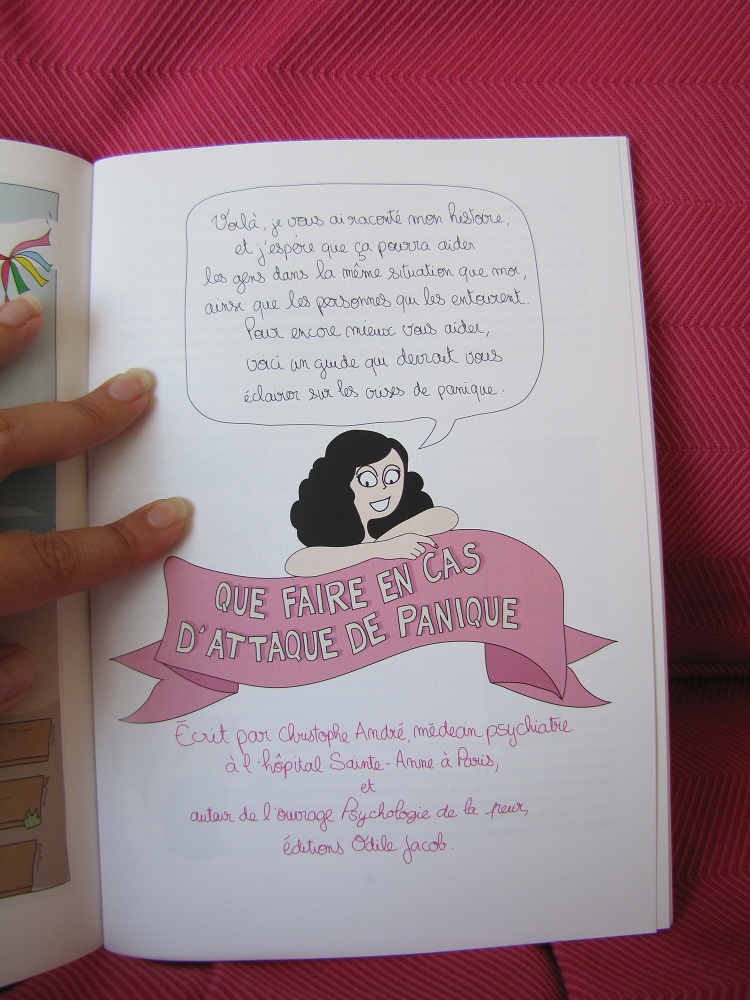 Voilà, je vous ai raconté mon histoire,
et j'espère que ça pourra aider
les gens dans la même situation que moi,
ainsi que les personnes qui les entourent.
Pour encore mieux vous aider,
voici un guide qui devrait vous
éclairer sur les crises de panique.
QUE FAIRE EN CAS
D'ATTAQUE DE PANIQUE
Écrit par Christophe André, médecin psychiatre
à l'hôpital Sainte-Anne à Paris,
et
auteur de l'ouvrage Psychologie de la peur,
éditions Odile Jacob.